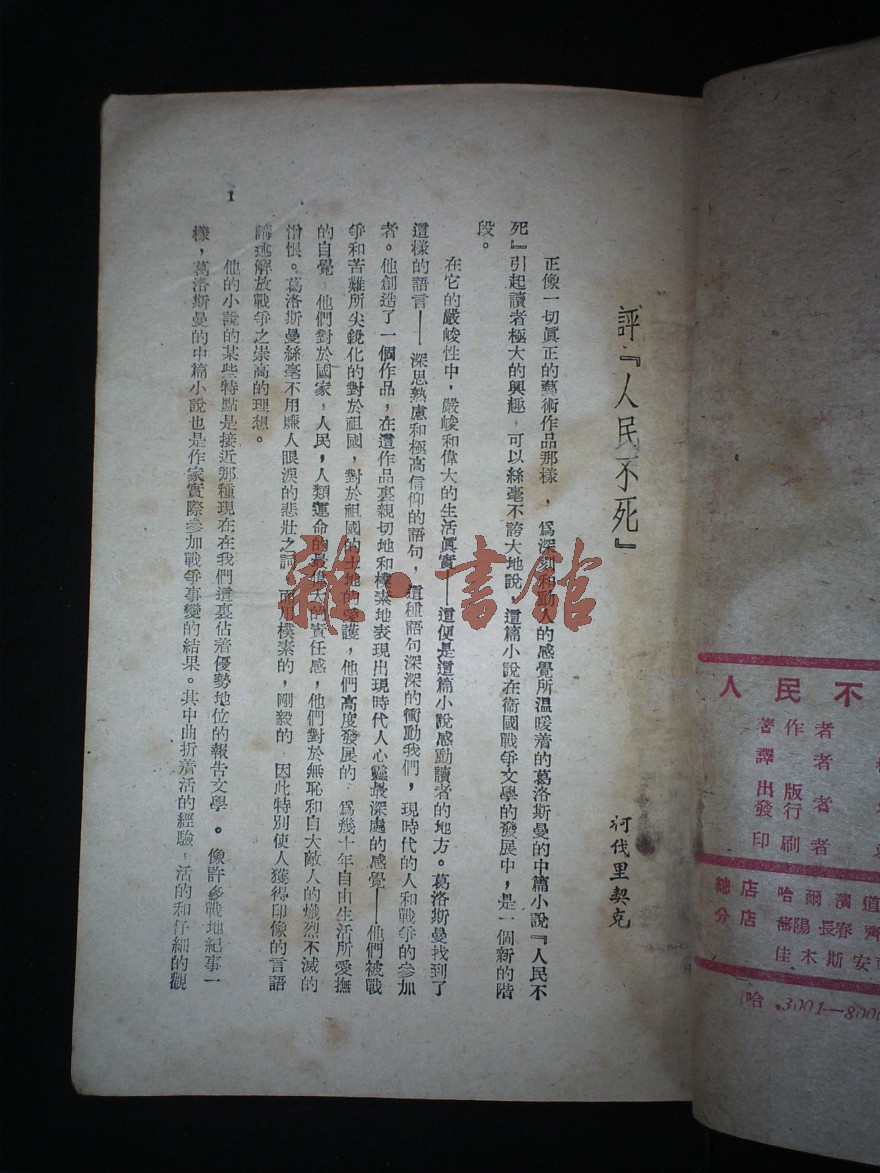 評『人民不死』
河伐里契克
正像一切眞正的藝術作品那樣，爲深刻和動人的感覺所溫暖着的葛洛斯曼的中篇小說『人民不
死』引起讀者極大的興趣，可以絲毫不誇大地說，這篇小說在衞國戰爭文學的發展中，是一個新的階
段。
在它的嚴峻性中，嚴峻和偉大的生活眞實——這便是這篇小說感動讀者的地方。葛洛斯曼找到了
這樣的語言——深思熟慮和極高信仰的語句，這種語句深深的衝動我們，現時代的人和戰爭的參加
者。他創造了一個作品，在這作品裏親切地和樸素地表現出現時代人心靈最深處的感覺——他們被戰
爭和苦難所尖銳化的對於祖國，對於祖國的土地的愛護，他們高度發展的，爲幾十年自由生活所愛撫
的自覺，他們對於國家，人民，人類運命的最偉大的責任感，他們對於無恥和自大敵人的熾烈不滅的
憎恨。葛洛斯曼絲毫不用賺人眼淚的悲壯之詞，而用樸素的，剛毅的，因此特別使人獲得印像的言語
講述解放戰爭之崇高的理想。
他的小說的某些特點是接近那種現在在我們這裏佔着優勢地位的報告文學。像許多戰地紀事一
樣，葛洛斯曼的中篇小說也是作家實際參加戰爭事變的結果。其中曲折着活的經驗，活的和仔細的觀
1
雜·書館
人民不
著作者
譯者
出版
發行者
印刷者
總店 哈爾濱道
分店 瀋陽 長春 齊
佳木斯 安東
（哈）3001—8000